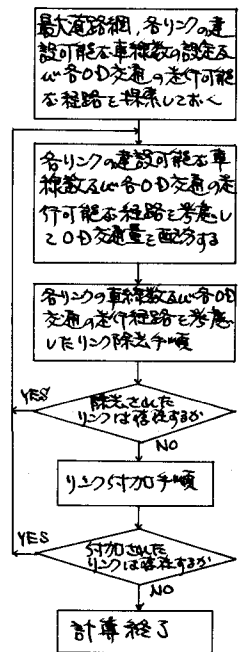 最大道路網,各リンクの建
設可能な車線数の設定及
び各OD交通の走行可能
な経路を探索しておく
各リンクの建設可能な車
線数及び各OD交通の走
行可能な経路を考慮し
てOD交通量を配分する
各リンクの車線数及び各OD
交通の走行経路を考慮
したリンク除去手順
除去された
リンクは存在するか
YES
NO
リンク付加手順
付加された
リンクは存在するか
YES
NO
計算終了